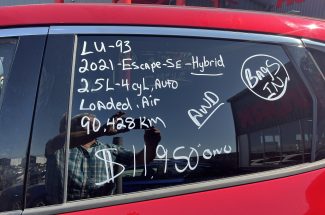 LU-93
2021-Escape-SE-Hybrid
2.5L-4cyl, Auto
Loaded. Air
90,428 Km
$11,950 ono
AND
BAGS IN